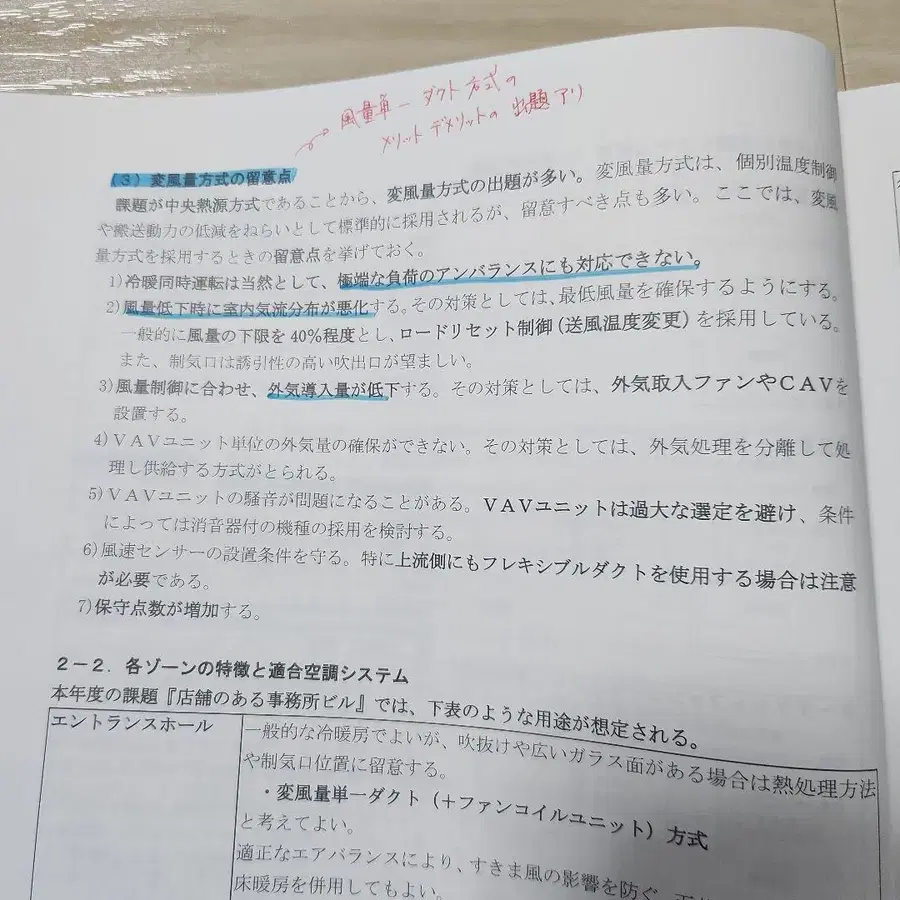 風量単一ダクト方式の
メリットデメリットの出題アリ
(3)変風量方式の留意点
課題が中央熱源方式であることから、変風量方式の出題が多い。変風量方式は、個別温度制御
や搬送動力の低減をねらいとして標準的に採用されるが、留意すべき点も多い。ここでは、変風
量方式を採用するときの留意点を挙げておく。
1)冷暖同時運転は当然として、極端な負荷のアンバランスにも対応できない。
2)風量低下時に室内気流分布が悪化する。その対策としては、最低風量を確保するようにする。
一般的に風量の下限を40%程度とし、ロードリセット制御(送風温度変更)を採用している。
また、制気口は誘引性の高い吹出口が望ましい。
3)風量制御に合わせ、外気導入量が低下する。その対策としては、外気取入ファンやCAVを
設置する。
4)VAVユニット単位の外気量の確保ができない。その対策としては、外気処理を分離して処
理し供給する方式がとられる。
5)VAVユニットの騒音が問題になることがある。VAVユニットは過大な選定を避け、条件
によっては消音器付の機種の採用を検討する。
6)風速センサーの設置条件を守る。特に上流側にもフレキシブルダクトを使用する場合は注意
が必要である。
7)保守点数が増加する。
2-2.各ゾーンの特徴と適合空調システム
本年度の課題『店舗のある事務所ビル』では、下表のような用途が想定される。
エントランスホール
一般的な冷暖房でよいが、吹抜けや広いガラス面がある場合は熱処理方法
や制気口位置に留意する。
・変風量単一ダクト(+ファンコイルユニット)方式
と考えてよい。
適正なエアバランスにより、すきま風の影響を防ぐ。
床暖房を併用してもよい。